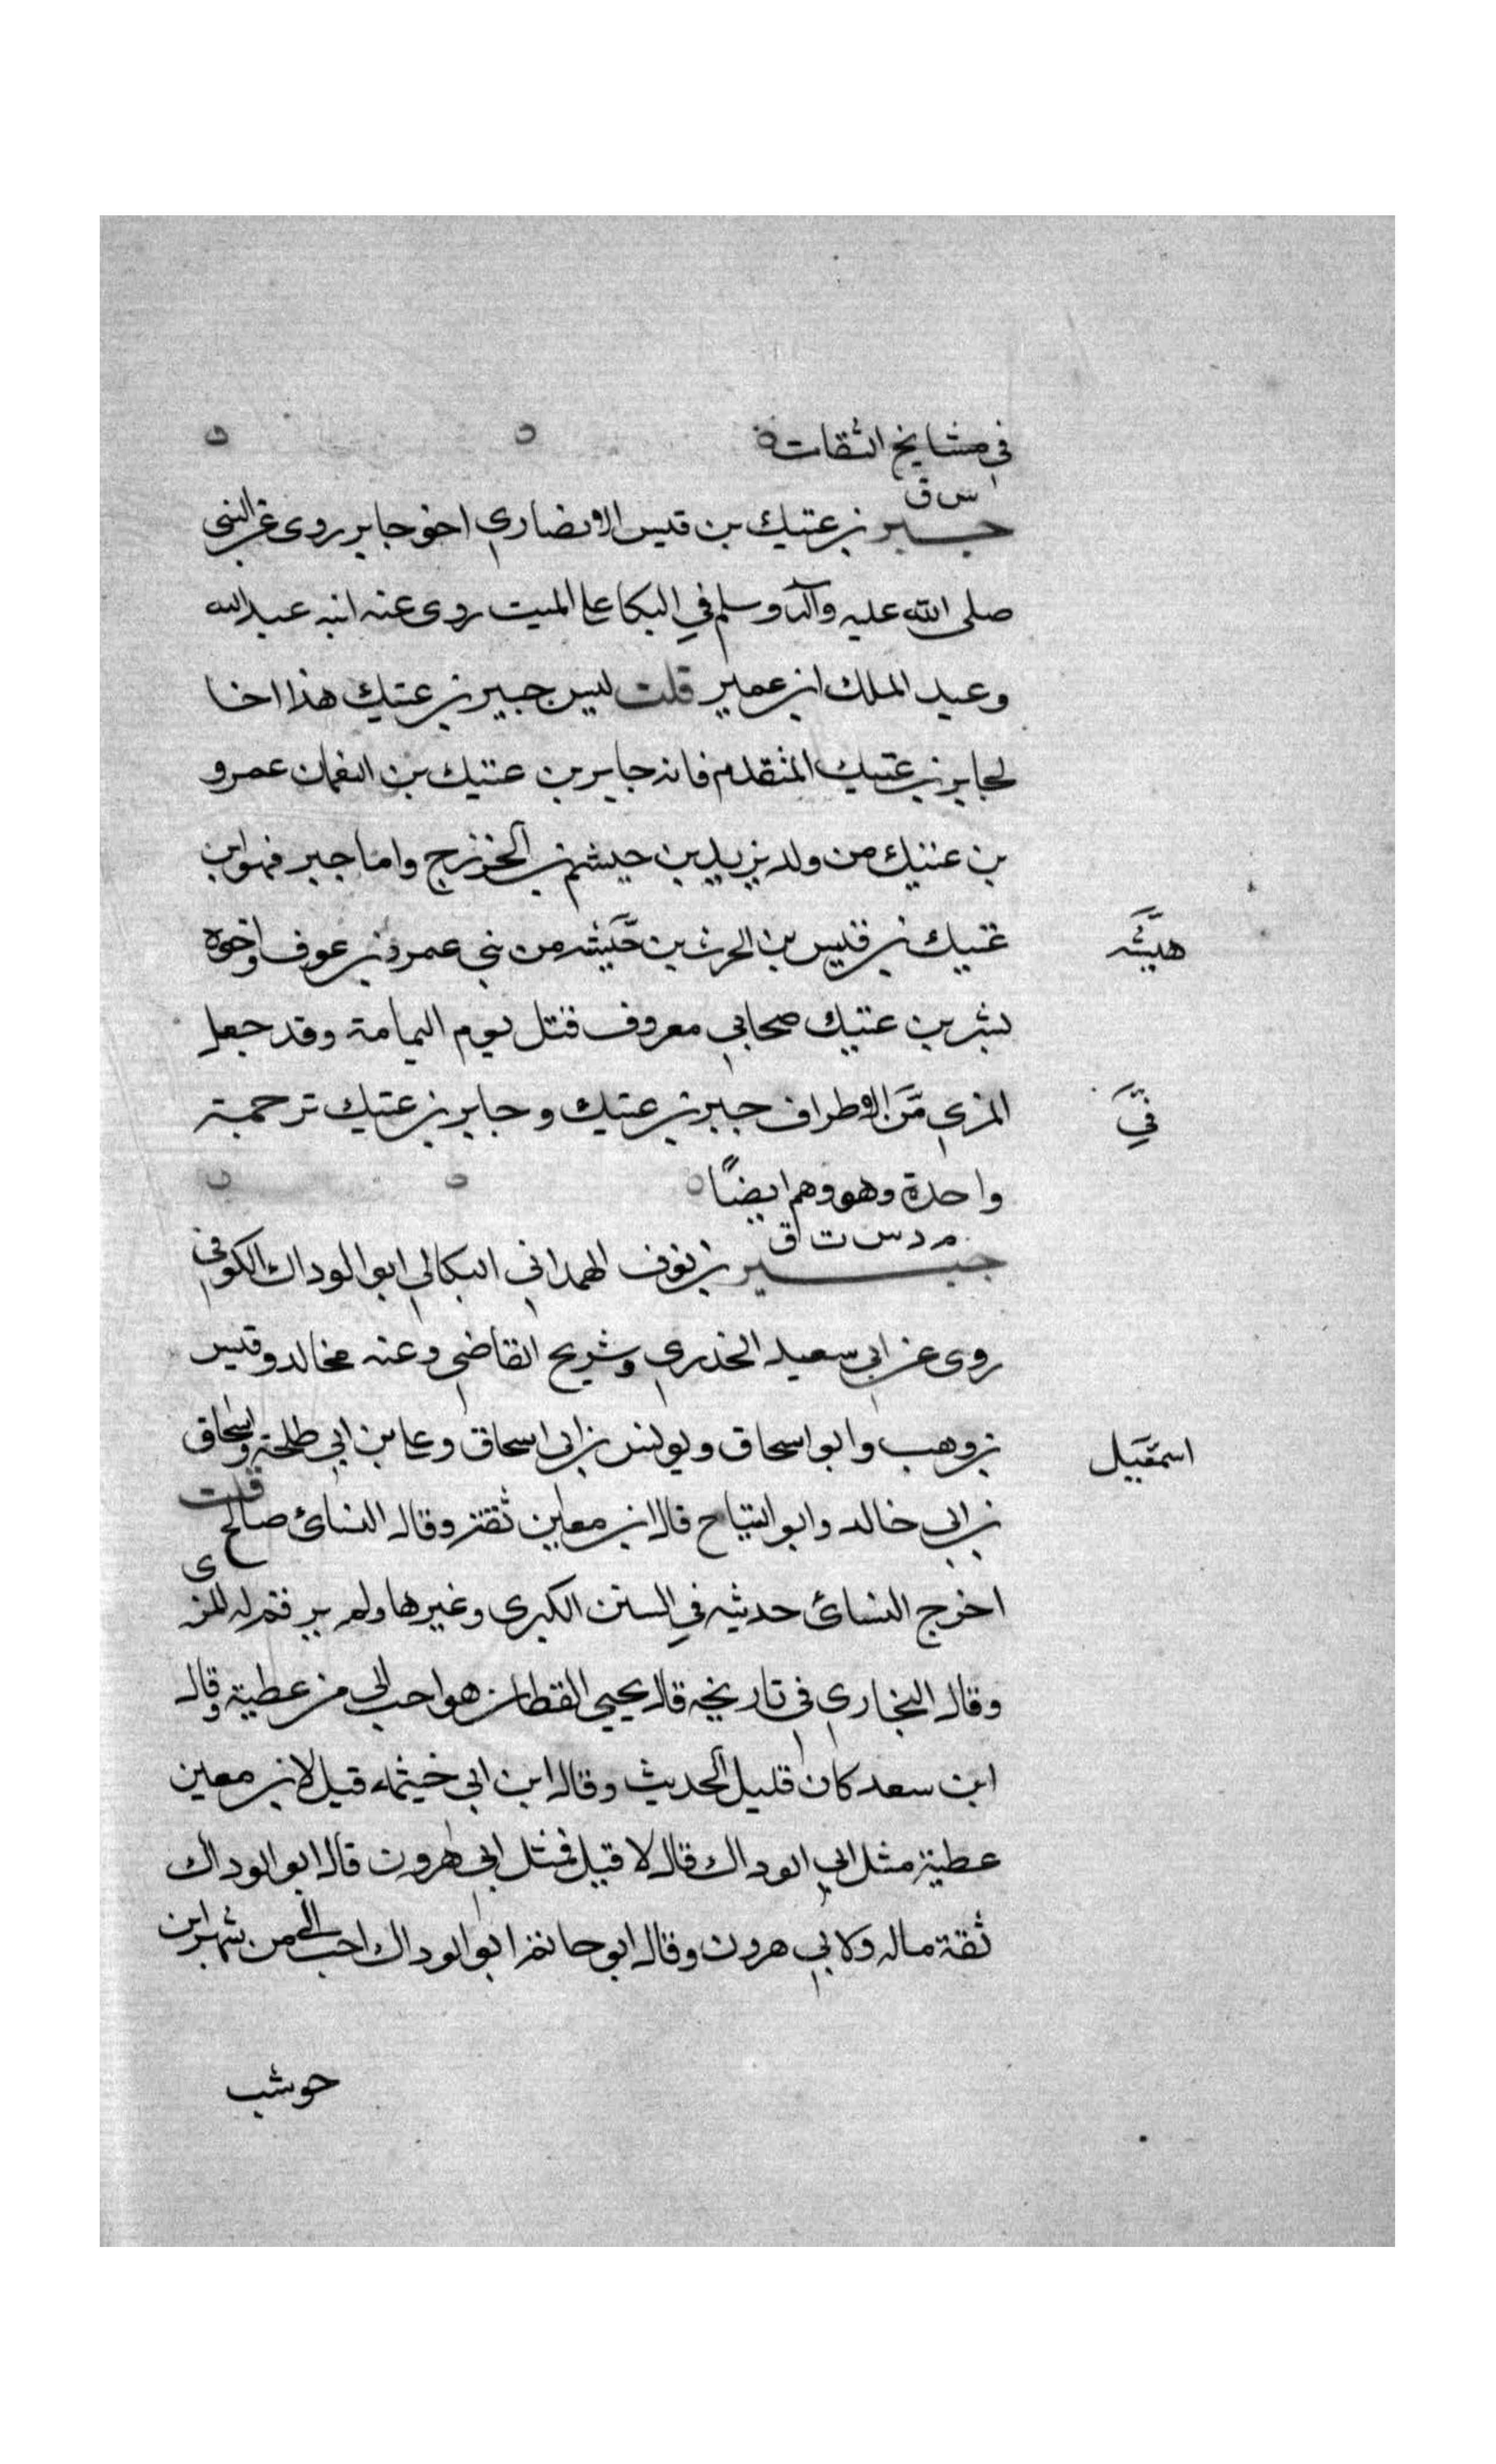 في مشايخ الثقات
س ق
جبير بن عتيك بن قيس الانصاري اخو جابر روى عن النبي
صلى الله عليه وآله وسلم في البكا على الميت روى عنه ابنه عبد الله
وعبد الملك ابن عمير قلت ليس جبير بن عتيك هذا اخا
لجابر بن عتيك المتقدم فانه جابر بن عتيك بن النعمان عمرو
بن عتيك من ولد يزيد بن جيشم بن الخزرج واما جبر فهو ابن
عتيك بن قيس بن الحرث بن حيشه من بني عمرو بن عوف واخوه
هيشه
بشر بن عتيك صحابي معروف قتل يوم اليمامة وقد جعل
المزي من الاطراف جبر بن عتيك وجابر بن عتيك ترجمة
في
واحدة وهو وهم ايضًا
م د س ت ق
جبير بن نوف الهمداني البكالي ابو الوداك الكوفي
روى عن ابي سعيد الخدري وشريح القاضي وعنه مخالد وقيس
بن وهب وابو اسحاق ويونس بن ابي اسحاق وعلي بن ابي طلحة واسحاق
اسمعيل
بن ابي خالد وابو التياح قال ابن معين ثقة وقال النسائ صالح قلت
اخرج النسائ حديثه في السنن الكبرى وغيرها ولم يرقم له المزي
وقال البخاري في تاريخه قال يحيى القطان هو احب الي من عطية وقال
ابن سعد كان قليل الحديث وقال ابن ابي خيثمه قيل لابن معين
عطية مثل ابي الوداك قال لا قيل فمثل ابي هرون قال ابو الوداك
ثقة ماله ولابي هرون وقال ابو حاتم ابو الوداك احب الي من شهر ابن
حوشب